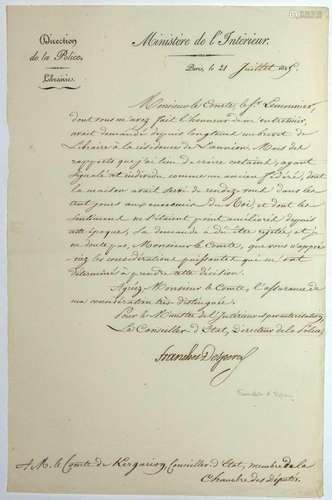 Direction
de la Police.
Librairie.
Ministère de l'Intérieur.
Paris, le 21 Juillet
Monsieur le Comte, le Sr. Lemonnier,
dont vous m'avez fait l'honneur de m'entretenir,
avait demandé depuis longtems un brevet de
Libraire à la résidence de Lannion. Mais des
rapports que j'ai lieu de croire certains, ayant
signalé cet individu comme un ancien fédéré, dont
la maison avait servi de rendez-vous dans les
cent jours aux ennemis du Roi, et dont les
sentimens ne s'étaient point améliorés depuis
cette époque, sa demande a dû être rejetée, et je
ne doute pas, Monsieur le Comte, que vous n'appré-
ciez les considérations puissantes qui m'ont
déterminé à prendre cette décision.
Agréez, Monsieur le Comte, l'assurance de
ma considération très distinguée.
Pour le Ministre de l'Intérieur et par autorisation,
Le Conseiller d'Etat, Directeur de la Police,
Franchet Desperey
A M. le Comte de Kergariou, Conseiller d'Etat, membre de la
Chambre des députés.